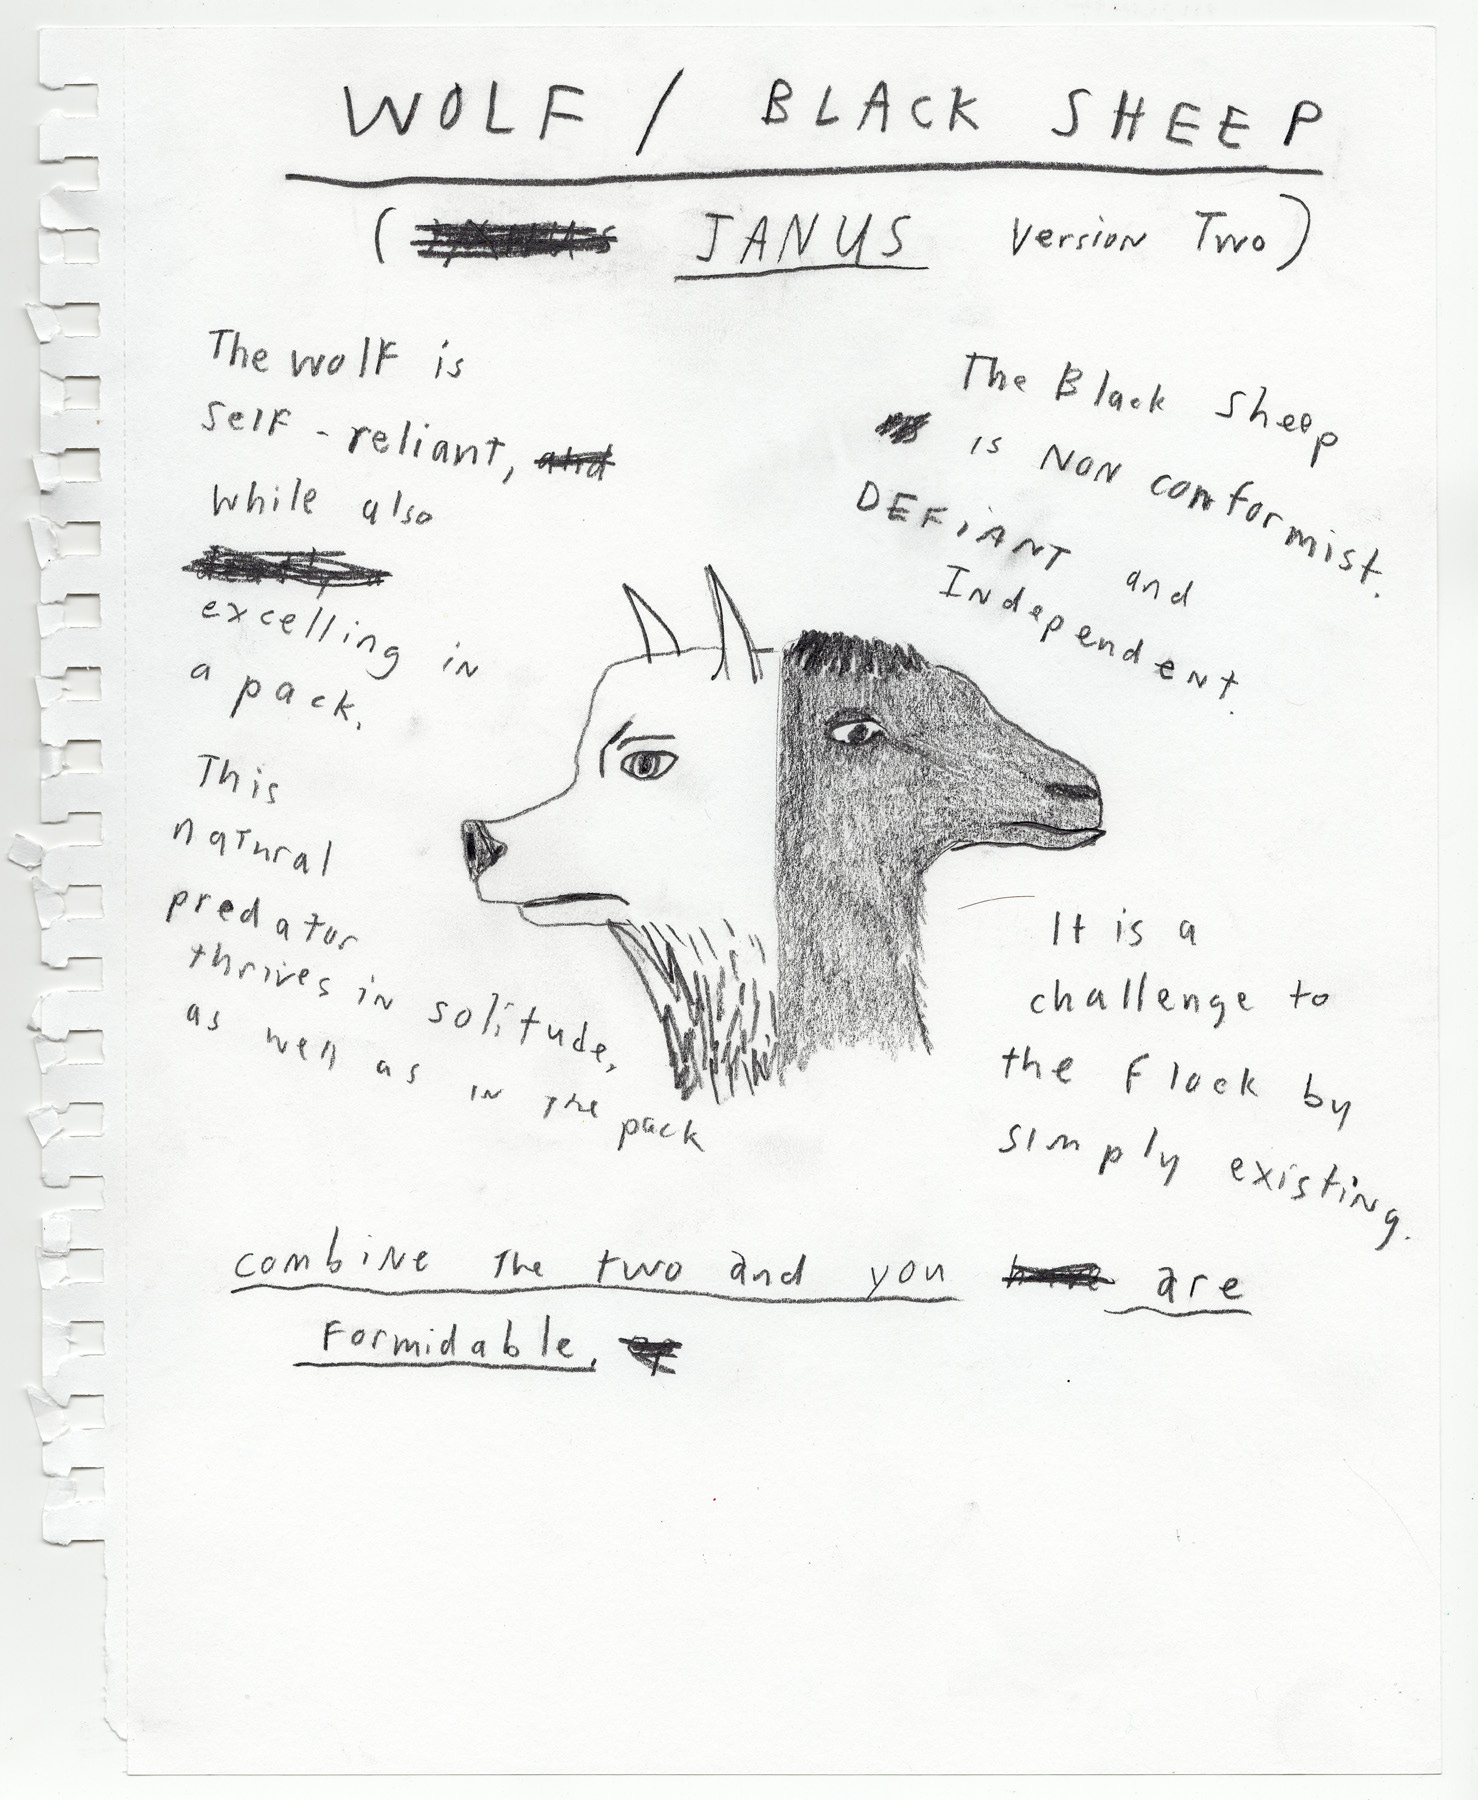 WOLF / BLACK SHEEP
(JANUS Version Two)
The wolf is
self-reliant, and
while also
excelling in
a pack.
This
natural
predator
thrives in solitude,
as well as in the pack
The Black Sheep
is NON comformist.
DEFiANT and
Independent.
It is a
challenge to
the Flock by
simply existing.
combine The two and you have are
Formidable.